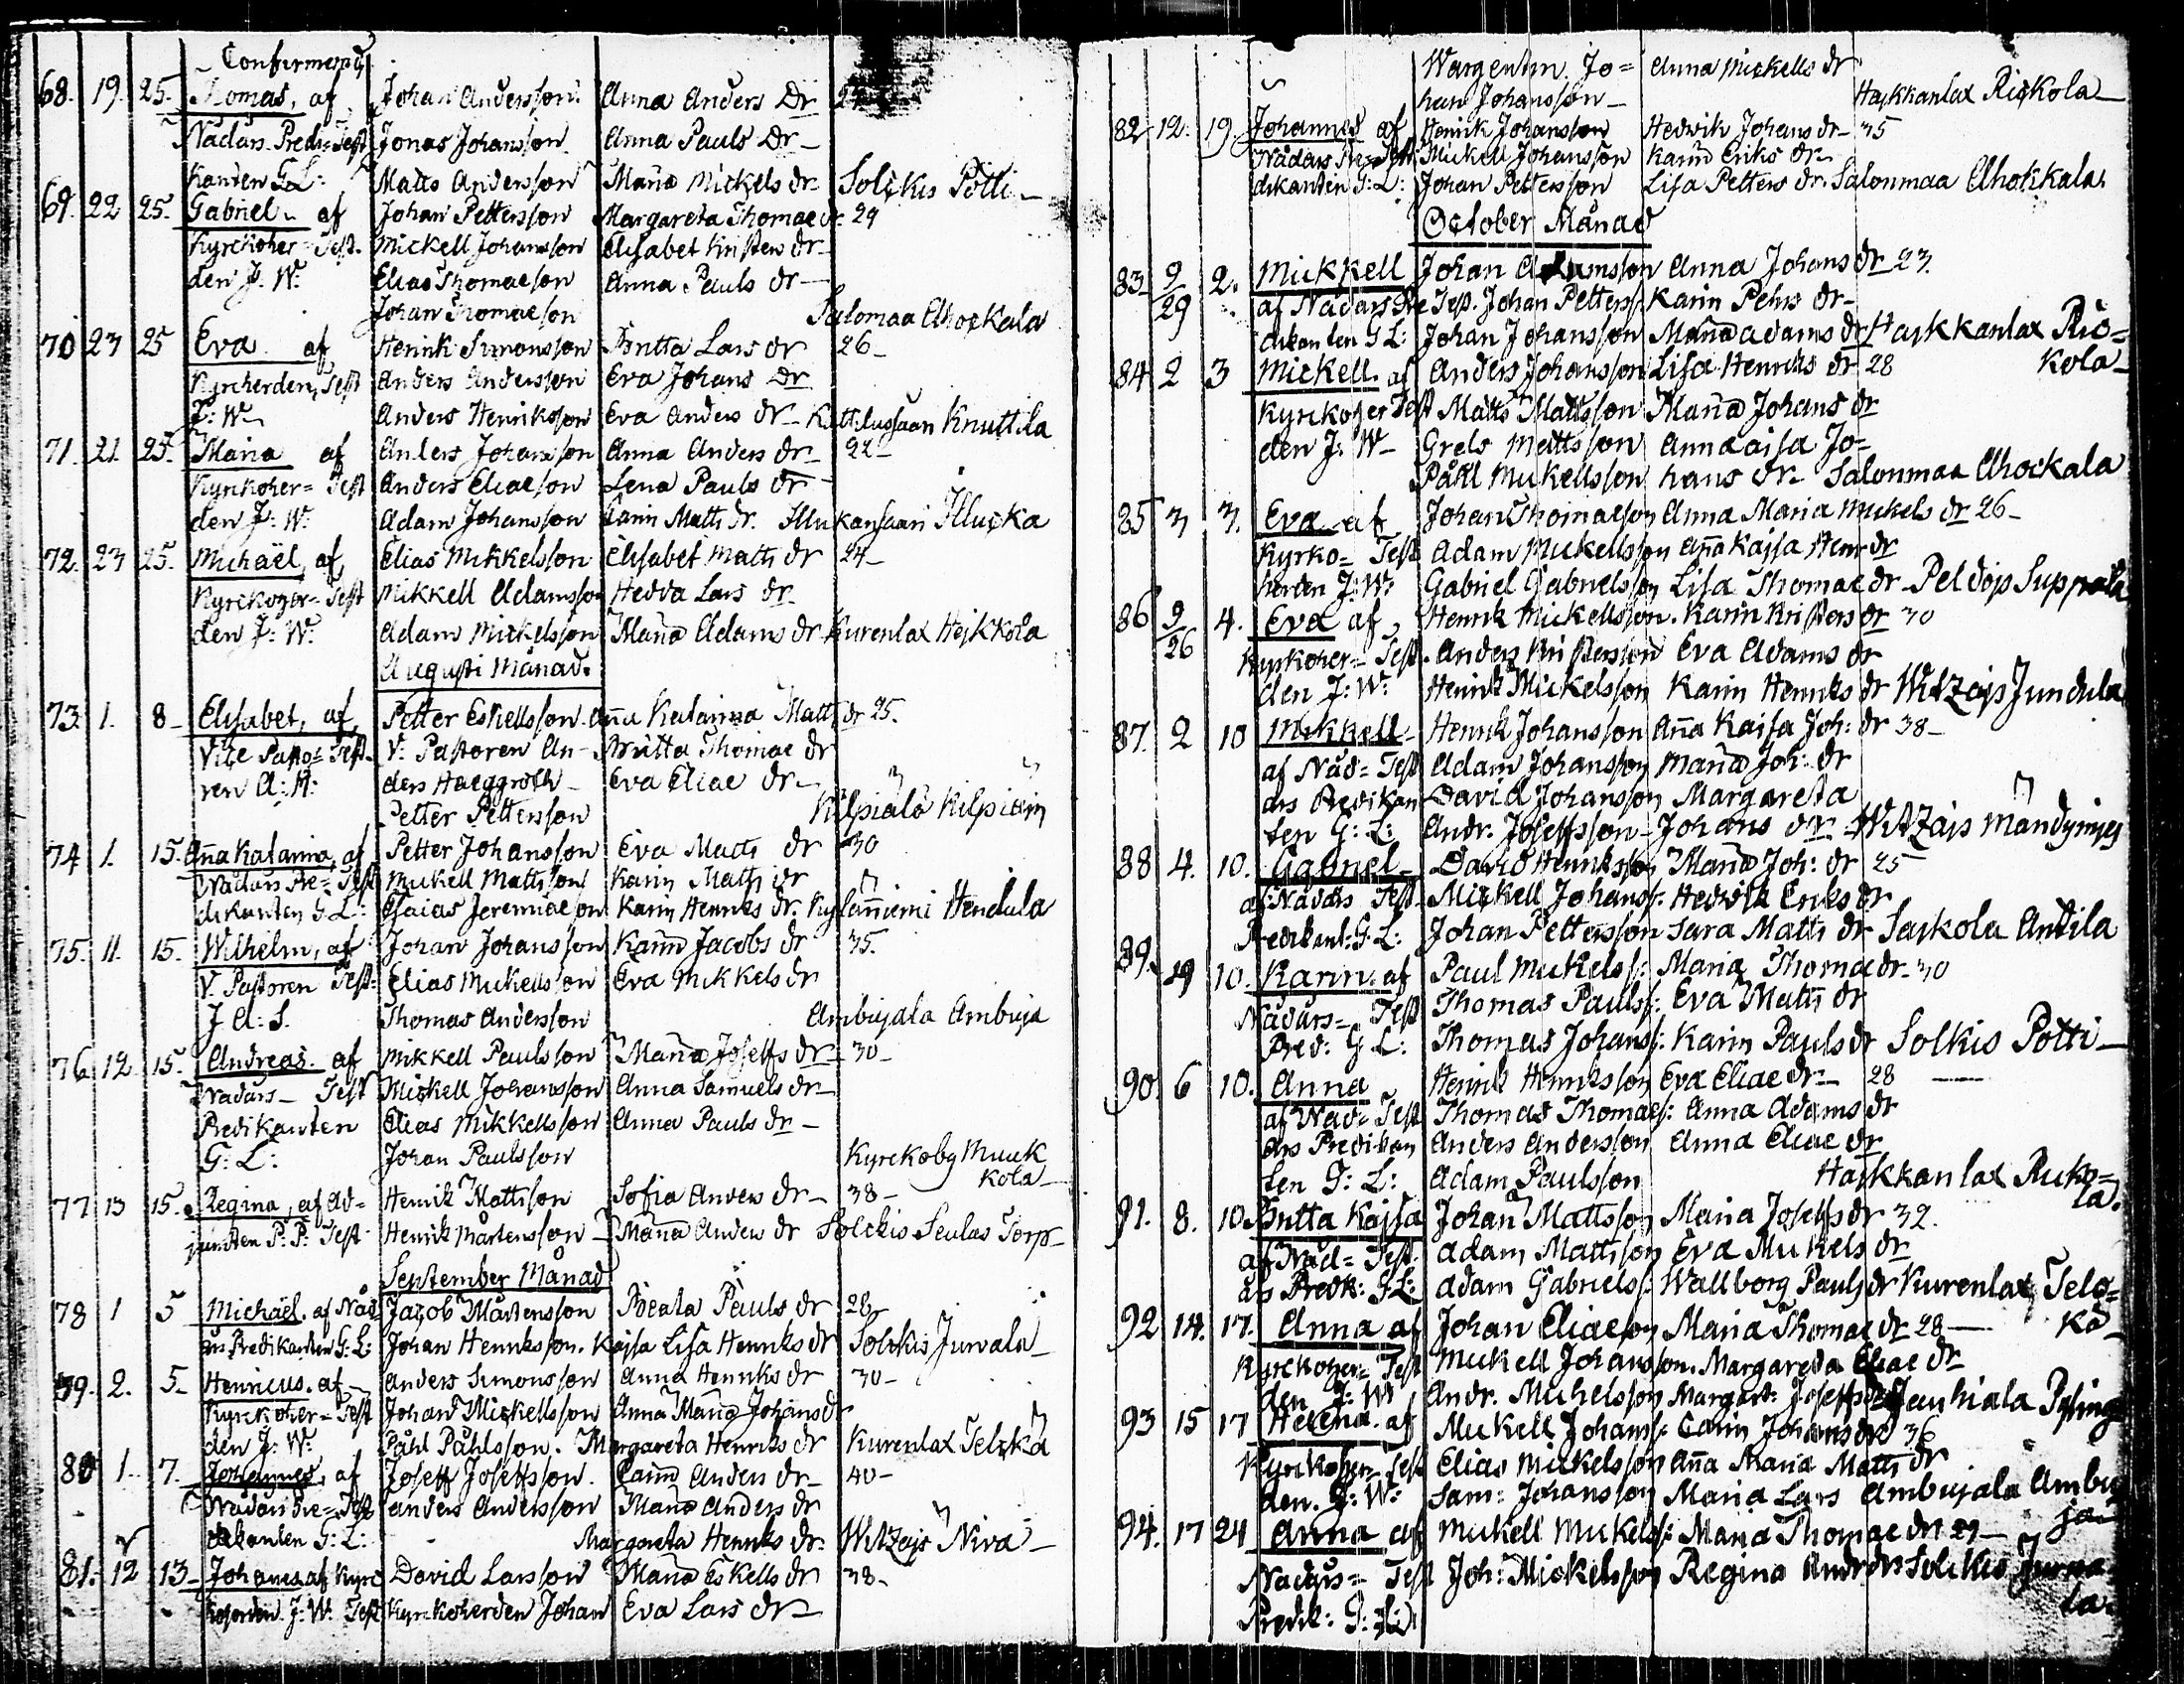 Confirmerad
68. 19. 25. Thomas, af Johan Andersson. Anna Anders Dr
Nådårs Predi= Test Jonas Johansson Anna Pauls Dr
kanten G. L: Matts Andersson Maria Mickels dr Solckis Potti
69. 22 25. Gabriel af Johan Pettersson Margareta Thomae dr 29
Kyrckoher= Test. Mickell Johansson Elisabet Kristers dr
den J. W. Elias Thomaeson Anna Pauls dr
Johan Thomaeson Salomaa Ahockala
70 23 25 Eva af Henrik Simonsson Britta Lars dr 26
Kyrcherden, Test Anders Andersson Eva Johans Dr
J: W Anders Henriksson Eva Anders dr Knuttila
71. 21. 25. Maria af Anders Johansson Anna Anders dr 22
Kyrckoher= Test Anders Eliaeson Lena Pauls dr
den J: W: Adam Johansson Carin Matts dr. Illukansaari Illucka
72. 23 25. Michaël, af Elias Mikkelsson Elisabet Matts dr 24
Kyrckoher= Test Mikkell Adamsson Hedda Lars dr
den J: W: Adam Mickelsson Maria Adams dr Kurenlax Hejkkola
Augusti Månad.
73. 1. 8 Elisabet, af Petter Eskellsson. Anna Katarina Matts dr 25.
Vice Pasto= Test. V: Pastoren An- Britta Thomae dr
ren A: H: ders Haeggroth Eva Eliae dr
Petter Pettersson Kilpiala Kilpiäin
74 1. 15. Anna Katarina, af Petter Johansson Eva Matts dr 30
Nådårs Pre= Test Mickell Mattsson Karin Matts dr
dikanten G. L: Esaias Jeremiaeson Karin Henriks dr. Kylänniemi Hendula
75. 11. 15. Wilhelm, af Johan Johansson Karin Jacobs dr 35.
V. Pastoren Test: Elias Mickellsson Eva Mikkels dr
J A: S. Thomas Andersson Ambujala Ambuja
76 12. 15. Andreas. af Mikkell Paulsson Maria Joseffs dr 30
Nådårs Test Mickell Johansson Anna Samuels dr
Predikanten Elias Mikkellsson Anna Pauls dr
G: L: Johan Paulsson Kyrckoby Muuk
kola
77 13 15. Regina, af Ad= Henrik Mattsson Sofia Anders dr 38
juncten P: P: Test Henrik Mårtensson Maria Anders dr Solckis Seulas Torp
September Månad
78 1 5 Michaël. af Nåd Jacob Mårtensson Beata Pauls dr 28
års Predikanten G: L: Johan Henriksson. Kajsa Lisa Henriks dr Solckis Jurvala
79. 2. 5 Henricus. af Anders Simonsson Anna Henriks dr 30
Kyrckoher= Test Johan Mickellsson Anna Maria Johans dr
den J: W: Påhl Påhlsson. Margareta Henriks dr Kurenlax Telckä
80 1. 7. Johannes, af Joseff Joseffsson. Carin Anders dr 40
Nådårs Pre= Test Anders Andersson Maria Anders dr
dikanten G: L: Margareta Henriks dr. Witzajs Niva
81. 12 13 Johannes af Kyrc David Larsson Maria Eskells dr 38
koherden J: W: Test Kyrckoherden Johan Eva Lars dr
Wargentin. Jo= Anna Mickells dr
han Johansson Hajkkanlax Rickola
82 12. 19. Johannes af Henrik Johansson Hedvik Johans dr 35
Nådårs Pre= Test. Mickell Johansson Karin Eriks dr
dikanten G: L: Johan Pettersson Lisa Petters dr. Salonmaa Ahokkala
October Månad
83 9/29 2. Mickkell Johan Adamsson Anna Johans dr 23.
af Nådårs Pre Test. Johan Petters: Karin Pehrs dr
dikanten G L: Johan Johansson Maria Adams dr Hajkkanlax Ric=
kola
84 2 3 Mickell. af Anders Johansson Lisa Henriks dr 28
Kyrckoher Test Matts Mattsson Maria Johans dr
den J: W Grels Mattsson Anna Caisa Jo=
Påhl Mickellsson hans dr Salonmaa Ahockala
85 3 3. Eva af Johan Thomaeson Anna Maria Mickels dr 26
Kyrko= Test Adam Mickellsson Anna Kajsa Henr dr
herden J: W: Gabriel Gabrielsson Lisa Thomae dr Peldois Suppola
86 9/26 4. Eva af Henrik Mickellsson. Karin Kristers dr 30
Kyrckoher= Test. Anders Kristersson Eva Adams dr
den J: W: Henrik Mickelsson Karin Henriks dr Witzajs Jundula
87. 2 10 Mickkell Henrik Johansson Anna Kajsa Joh: dr 38
af Nåd= Test Adam Johansson Maria Joh: dr
års Predikan David Johansson Margareta
ten G: L: Andr. Joseffsson Johans dr Witzajs
88 4. 10. Gabriel David Henriksson Maria Joh: dr 25
af: Nådårs Test. Mickell Johans: Hedvik Eriks dr
Predikant: G: L: Johan Pettersson Sara Matts dr Sajkola Antila
89. 19 10. Karin. af Paul Mickels: Maria Thomae dr 30
Nådårs= Test Thomas Pauls: Eva Matts dr
Pred: G L: Thomas Johans: Karin Pauls dr Solkis Potti
90. 6 10. Anna Henrik Henriksson Eva Eliae dr 28
af Nåd= Test Thomas Thomaes: Anna Adams dr
års Predikan Anders Andersson Anna Eliae dr
ten G: L: Adam Paulsson Hajkkanlax Ricko=
la.
91. 8. 10. Britta Kajsa Johan Mattsson Maria Joseffs dr 32.
af Nåd= Test: Adam Mattsson Eva Mickels dr
års Predk: G: L: Adam Gabriels: Wallborg Pauls dr Kurenlax, Telc=
kä
92 14. 17. Anna af Johan Eliaeson Maria Thomae dr 28
Kyrckoher= Test Mickell Johansson. Margareta Eliae dr
den J: W Andr. Michelsson Margar: Joseffs dr
93 15 17 Helena. af Mickell Johans: Carin Johans dr 36
Kyrckoher= Test Elias Mickelsson Anna Maria Matts dr
den. J: W: Sam: Johansson Maria Lars Ambujala Ambu
ja
94. 17 24 Anna af Mickell Mickels: Maria Thomae dr 29
Nådårs= Test Joh: Mickelsson Regina Anders dr Solckis Jurva
la
Predik: G: L: